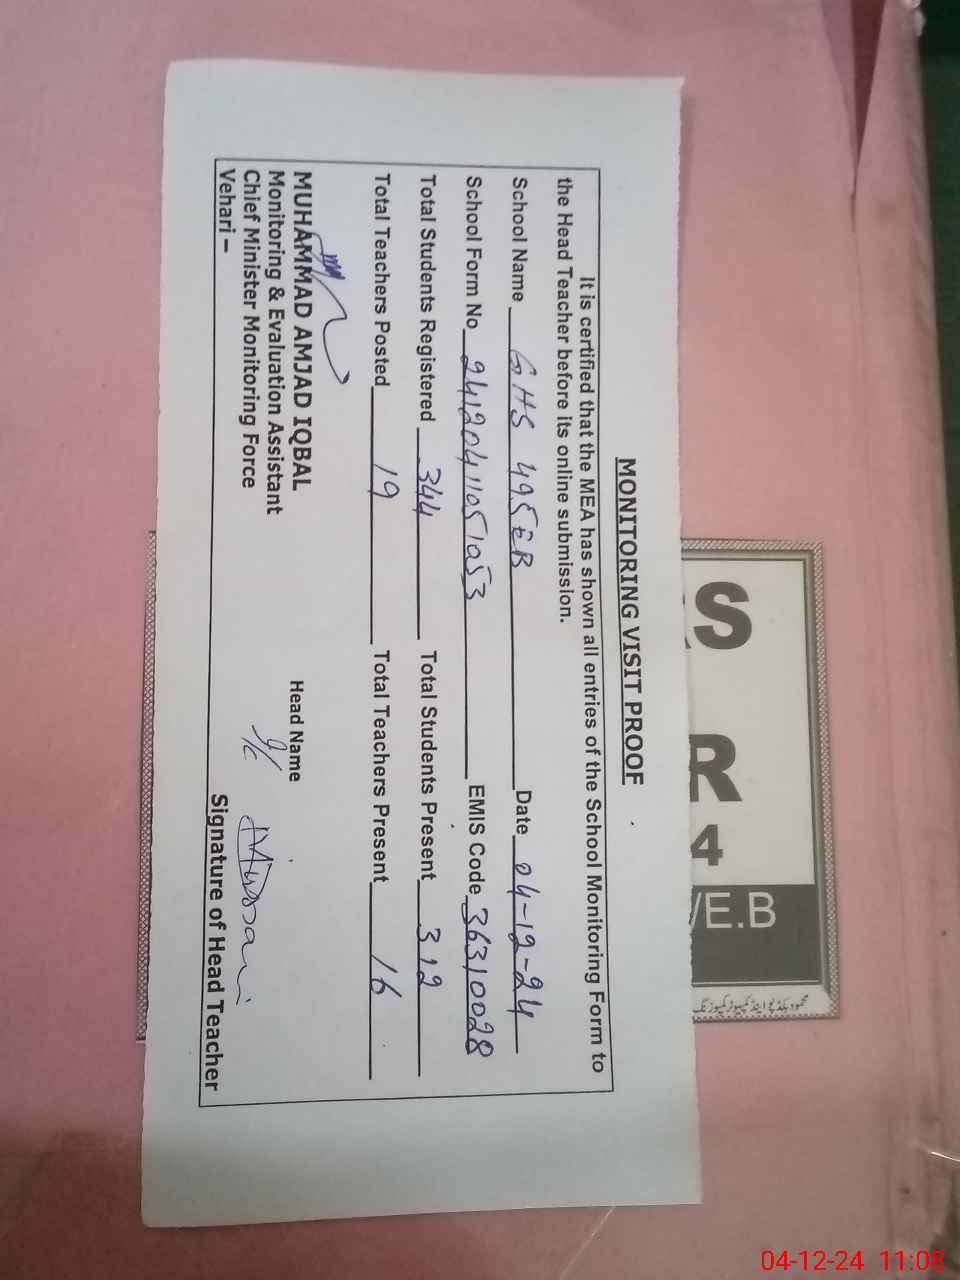 MONITORING VISIT PROOF
It is certified that the MEA has shown all entries of the School Monitoring Form to
the Head Teacher before its online submission.
School Name GHS 495EB Date 04-12-24
School Form No 24120411051053 EMIS Code 36310028
Total Students Registered 344 Total Students Present 312
Total Teachers Posted 19 Total Teachers Present 16
MUHAMMAD AMJAD IQBAL Head Name
Monitoring & Evaluation Assistant
Chief Minister Monitoring Force I/C
Vehari – Signature of Head Teacher
S
R
4
/E.B
04-12-24 11:08